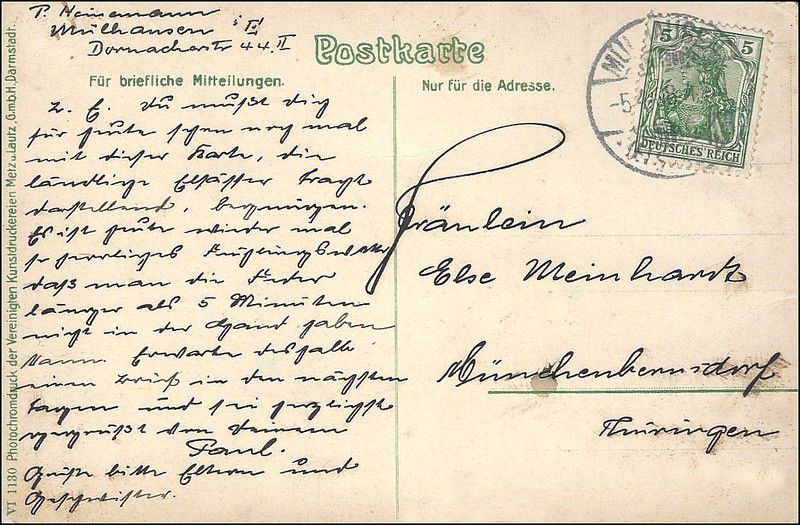 P. Heinemann
Mülhausen i/E
Dornacherstr 44 II
Postkarte
Für briefliche Mitteilungen.
Nur für die Adresse.
L. E. Du mußt dich
für heute schon noch mal
mit dieser Karte, die
ländliche Elsässer Tracht
darstellend, begnügen.
Es ist heute wieder mal
so herrliches Frühlingswetter
daß man die Feder
länger als 5 Minuten
nicht in der Hand haben
kann. Erwarte deshalb
einen Brief in den nächsten
Tagen und sei herzlichst
gegrüßt von Deinem
Paul.
Grüße bitte Eltern und
Geschwister.
Fräulein
Else Meinhardt
Münchenbernsdorf
Thüringen
5 5
DEUTSCHES REICH
VI 1130 Photochromdruck der Vereinigten Kunstdruckereien Metz u. Lautz, G.m.b.H., Darmstadt